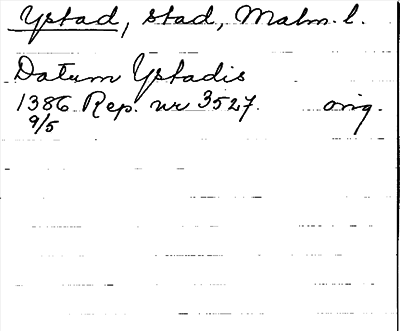 Ystad, stad, Malm. l.
Datum Ystadis
1386 Rep. nr 3527. orig.
9/5